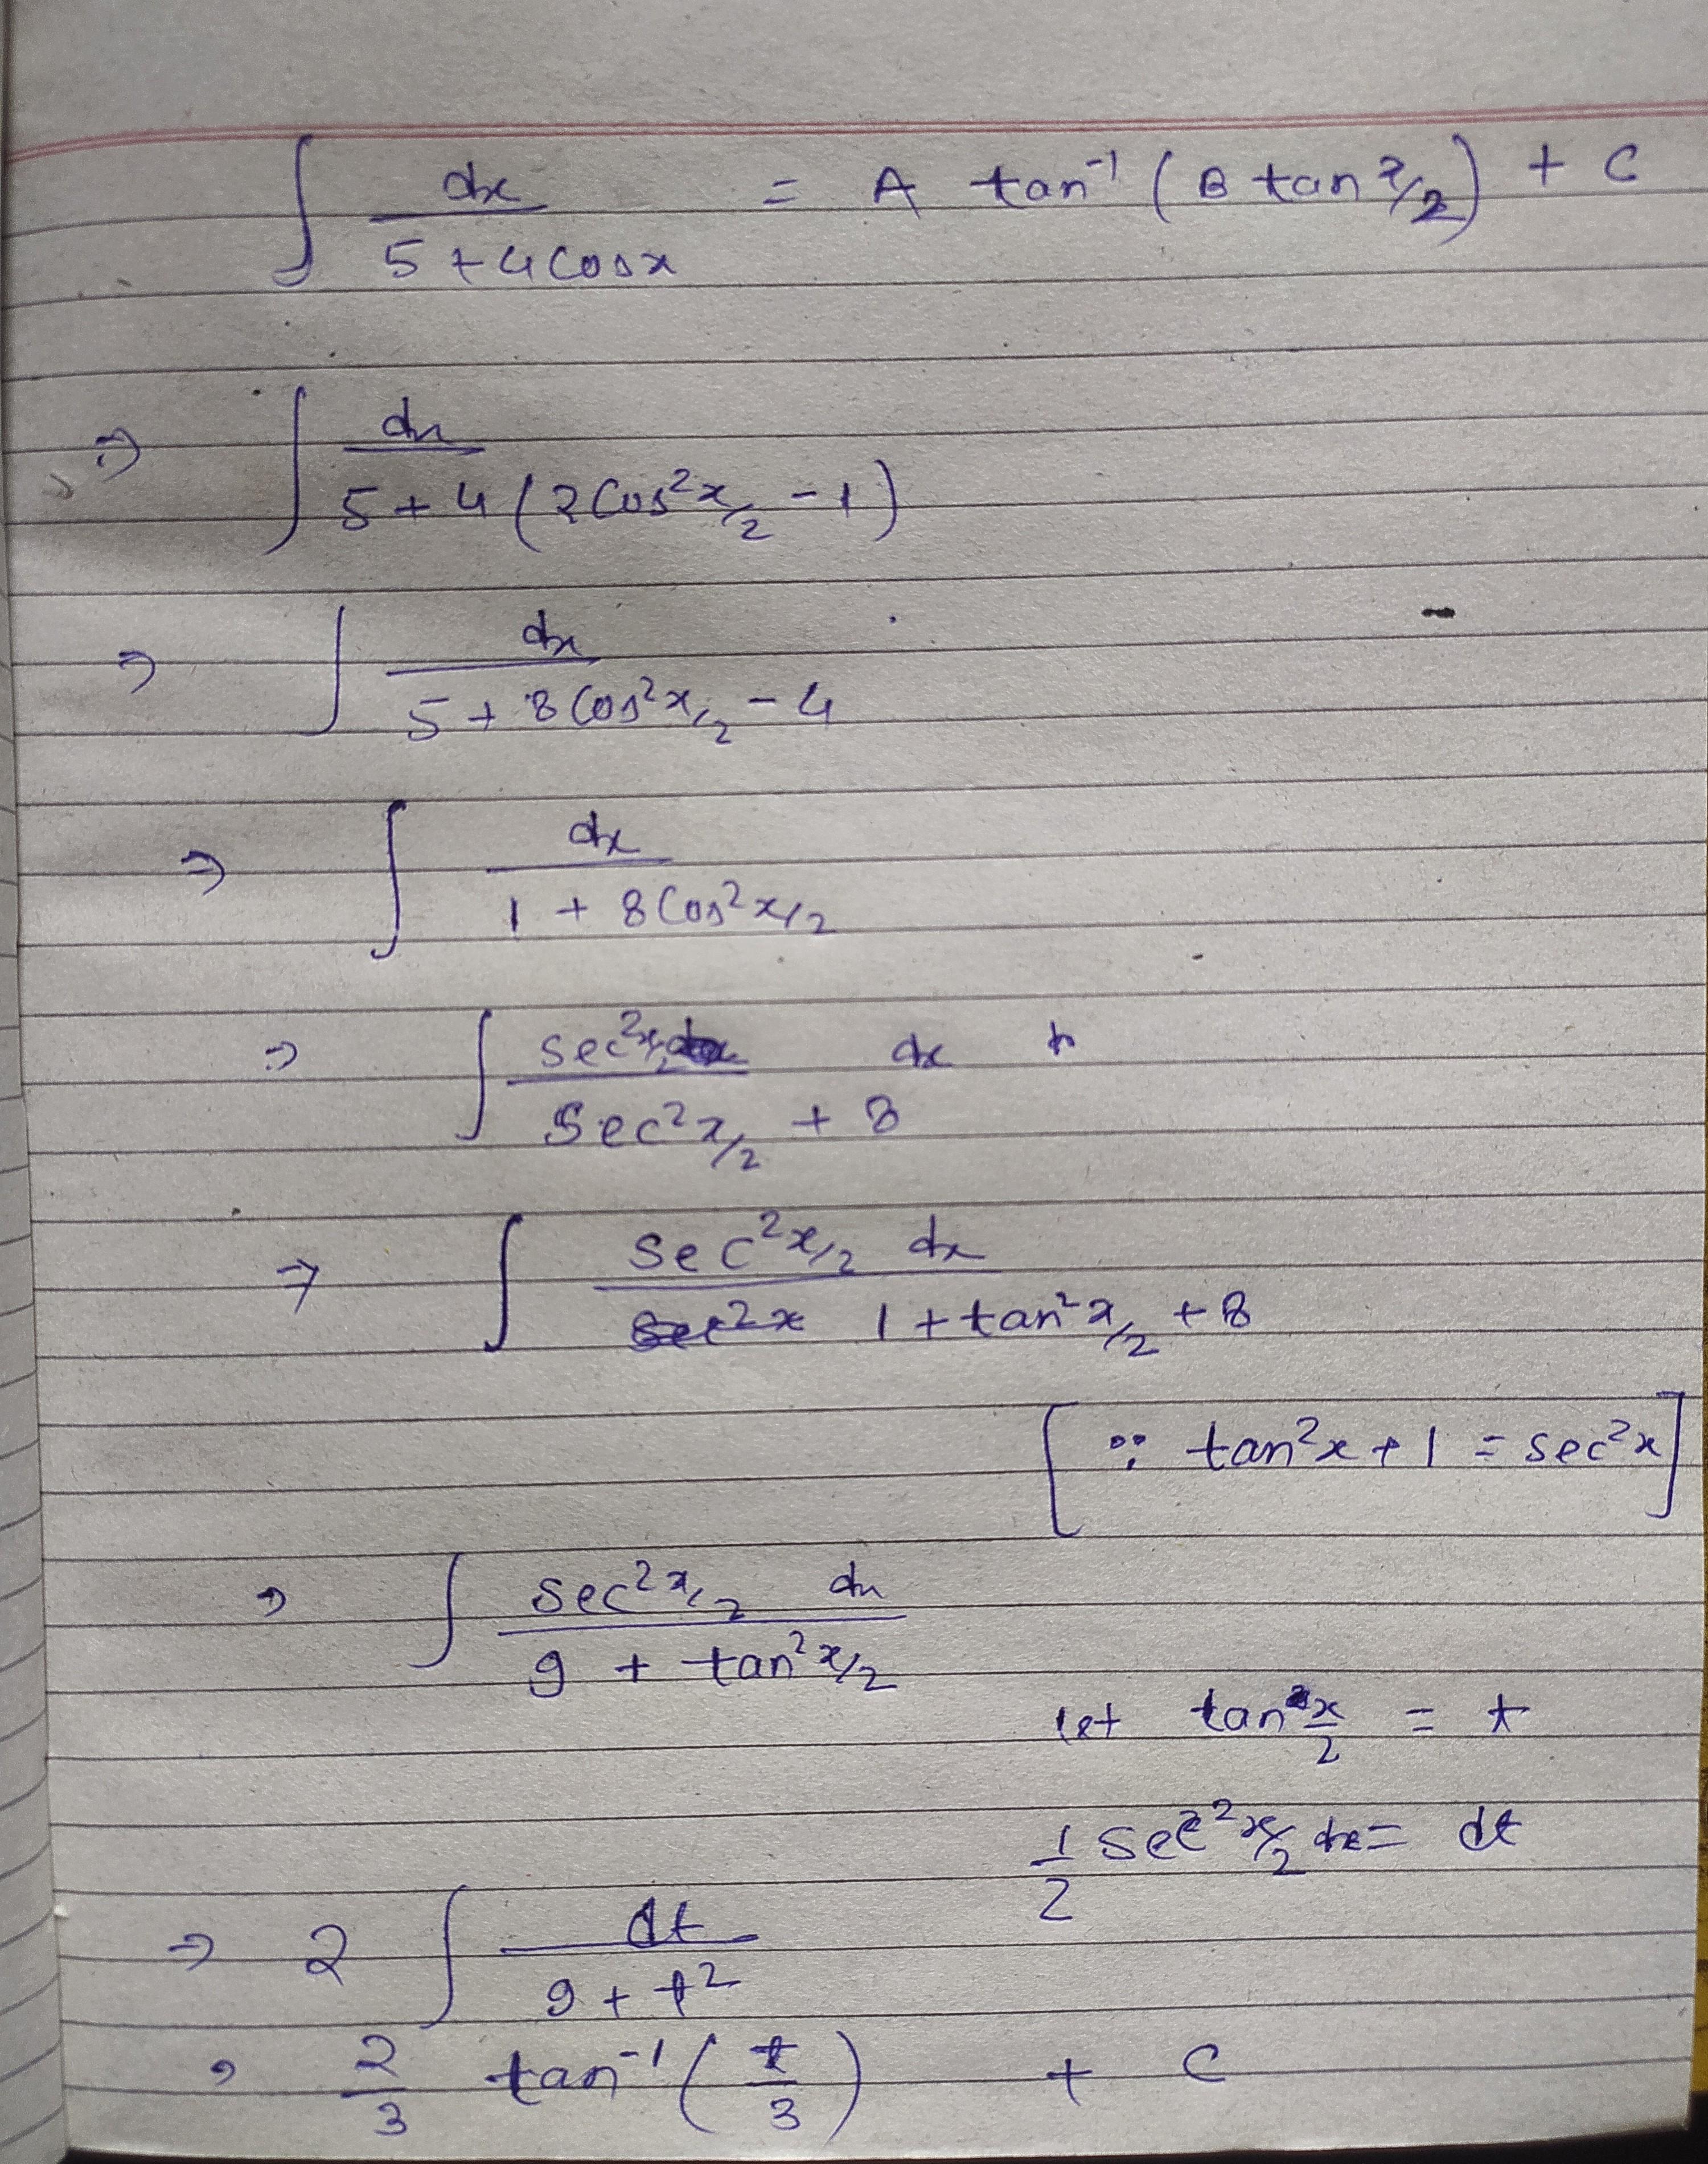 ∫ dx / (5 + 4 cos x) = A tan⁻¹ (B tan x/2) + C
⇒ ∫ dx / (5 + 4 (2 cos² x/2 - 1))
⇒ ∫ dx / (5 + 8 cos² x/2 - 4)
⇒ ∫ dx / (1 + 8 cos² x/2)
⇒ ∫ sec² x/2 / (sec² x/2 + 8) dx
⇒ ∫ sec² x/2 dx / (1 + tan² x/2 + 8)
[∵ tan² x + 1 = sec² x]
⇒ ∫ sec² x/2 dx / (9 + tan² x/2)
let tan x/2 = t
1/2 sec² x/2 dx = dt
⇒ 2 ∫ dt / (9 + t²)
⇒ 2/3 tan⁻¹ (t/3) + C